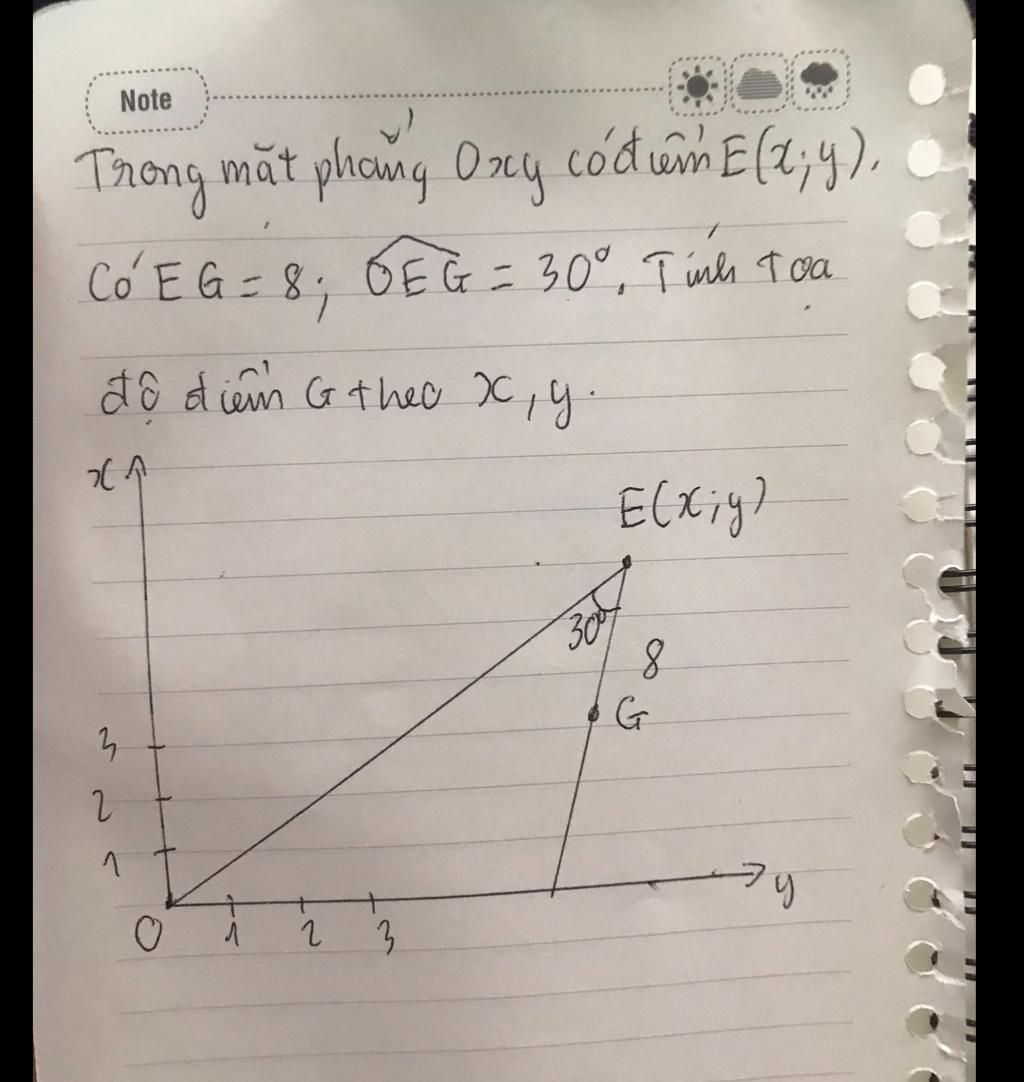 Note
Trong mặt phẳng Oxy có điểm E(x;y).
Có EG = 8; OEG = 30°. Tính toạ
độ điểm G theo x, y.
x
E(x;y)
30°
8
G
3
2
1
O
1 2 3
y